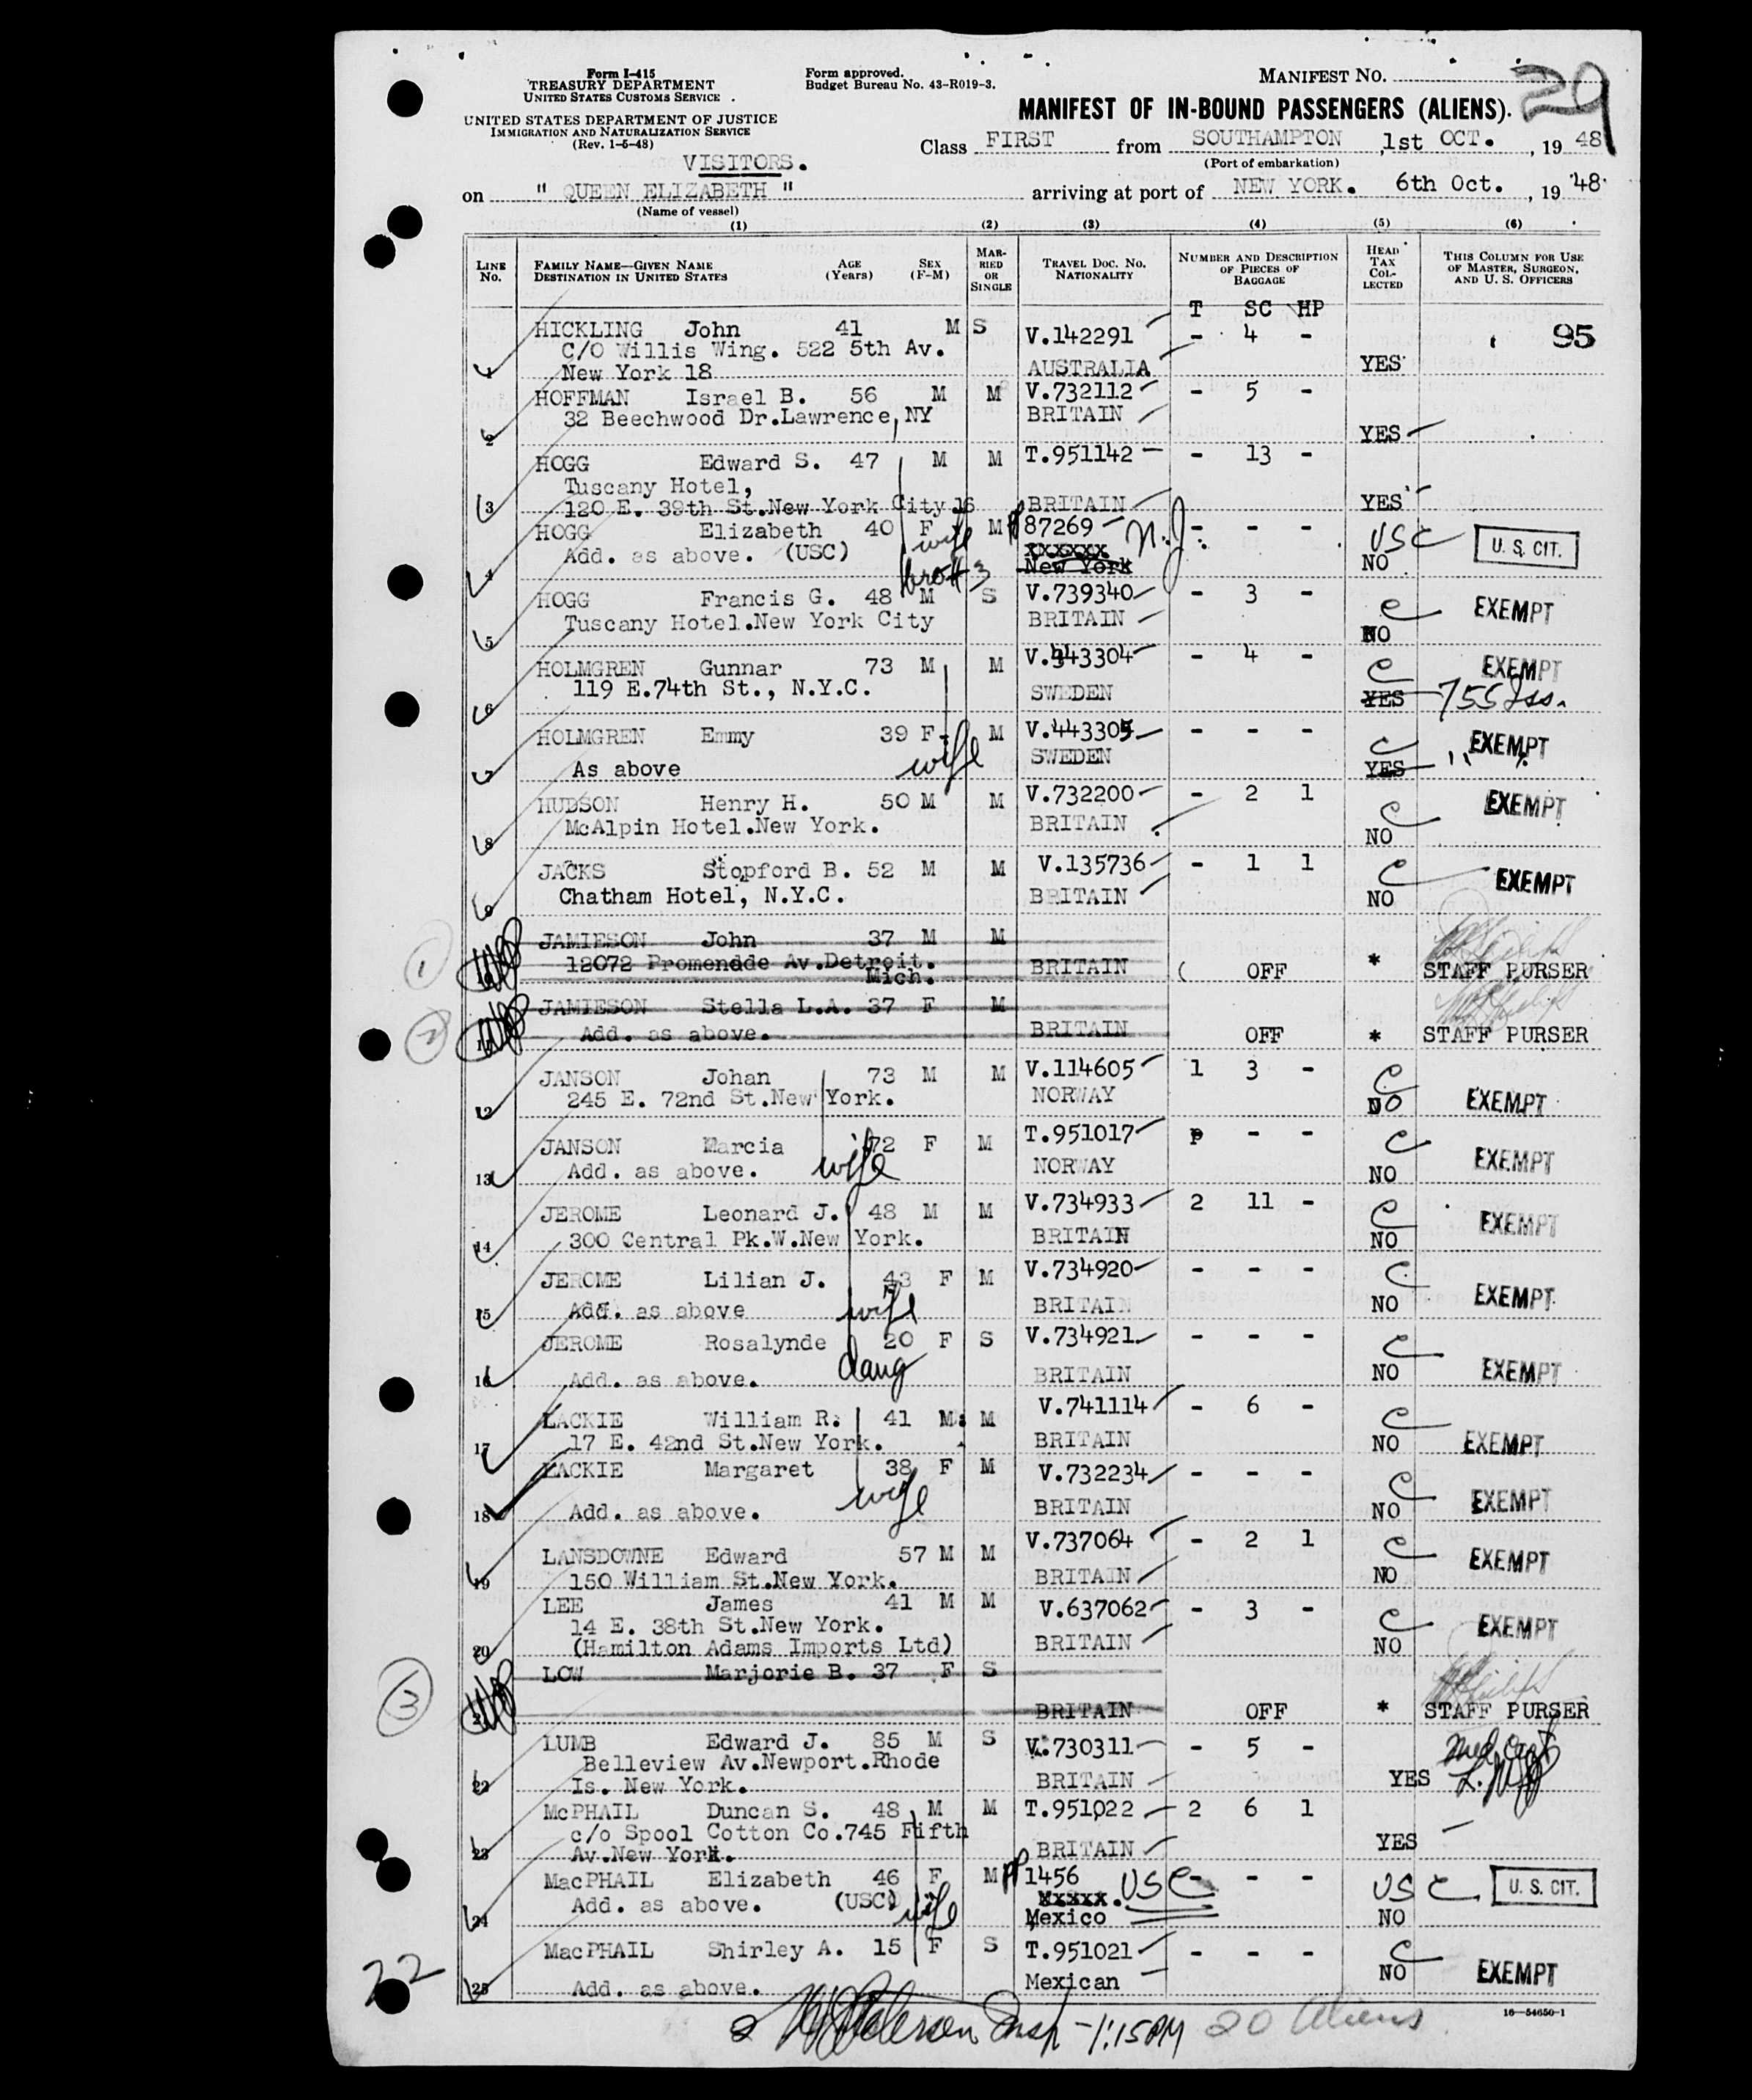 Form I-415
TREASURY DEPARTMENT
UNITED STATES CUSTOMS SERVICE
UNITED STATES DEPARTMENT OF JUSTICE
IMMIGRATION AND NATURALIZATION SERVICE
(Rev. 1-5-48)
Form approved.
Budget Bureau No. 43-R019-3.
MANIFEST NO.
29
MANIFEST OF IN-BOUND PASSENGERS (ALIENS).
Class FIRST from SOUTHAMPTON, 1st OCT., 1948
(Port of embarkation)
VISITORS.
on " QUEEN ELIZABETH " arriving at port of NEW YORK. 6th Oct., 19 48
(Name of vessel)
(1) (2) (3) (4) (5) (6)
LINE No. FAMILY NAME—GIVEN NAME DESTINATION IN UNITED STATES AGE (Years) SEX (F-M) MARRIED OR SINGLE TRAVEL DOC. No. NATIONALITY NUMBER AND DESCRIPTION OF PIECES OF BAGGAGE HEAD TAX COLLECTED THIS COLUMN FOR USE OF MASTER, SURGEON, AND U. S. OFFICERS
T SC HP
HICKLING John 41 M S V.142291 - 4 - 95
C/O Willis Wing. 522 5th Av.
1 New York 18 AUSTRALIA YES
HOFFMAN Israel B. 56 M M V.732112 - 5 -
32 Beechwood Dr.Lawrence, NY BRITAIN
2 YES
HOGG Edward S. 47 M M T.951142 - 13 -
Tuscany Hotel,
3 120 E. 39th St.New York City 16 BRITAIN YES
HOGG Elizabeth 40 F wife M 87269 N.J. - - - USC U. S. CIT.
Add. as above. (USC) xxxxxx
4 New York NO
bro # 3
HOGG Francis G. 48 M S V.739340 - 3 - EXEMPT
Tuscany Hotel.New York City BRITAIN
5 NO
HOLMGREN Gunnar 73 M M V.443304 - 4 - EXEMPT
119 E.74th St., N.Y.C. SWEDEN
6 YES 755 Iss.
HOLMGREN Emmy 39 F M V.443305 - - - EXEMPT
7 As above wife SWEDEN YES " "
HUDSON Henry H. 50 M M V.732200 - 2 1 EXEMPT
McAlpin Hotel.New York. BRITAIN
8 NO
JACKS Stopford B. 52 M M V.135736 - 1 1 EXEMPT
9 Chatham Hotel, N.Y.C. BRITAIN NO
1 JAMIESON John 37 M M
12072 Promendde Av.Detroit.
10 Mich. BRITAIN OFF * STAFF PURSER
2 JAMIESON Stella L.A. 37 F M
11 Add. as above. BRITAIN OFF * STAFF PURSER
JANSON Johan 73 M M V.114605 1 3 -
12 245 E. 72nd St.New York. NORWAY NO EXEMPT
JANSON Marcia 72 F M T.951017 - -
13 Add. as above. wife NORWAY NO EXEMPT
JEROME Leonard J. 48 M M V.734933 2 11 - EXEMPT
14 300 Central Pk.W.New York. BRITAIN NO
JEROME Lilian J. 43 F M V.734920 - - -
15 Add. as above wife BRITAIN NO EXEMPT
JEROME Rosalynde 20 F S V.734921 - - -
16 Add. as above. daug BRITAIN NO EXEMPT
LACKIE William R. 41 M M V.741114 - 6 -
17 17 E. 42nd St.New York. BRITAIN NO EXEMPT
LACKIE Margaret 38 F M V.732234 - - -
18 Add. as above. wife BRITAIN NO EXEMPT
LANSDOWNE Edward 57 M M V.737064 - 2 1 EXEMPT
19 150 William St.New York. BRITAIN NO
LEE James 41 M M V.637062 - 3 - EXEMPT
14 E. 38th St.New York.
20 (Hamilton Adams Imports Ltd) BRITAIN NO
3 LOW Marjorie B. 37 F S
21 BRITAIN OFF * STAFF PURSER
LUMB Edward J. 85 M S V.730311 - 5 - Med Cert
Belleview Av.Newport.Rhode
22 Is. New York. BRITAIN YES
McPHAIL Duncan S. 48 M M T.951022 2 6 1
c/o Spool Cotton Co.745 Fifth
23 Av.New York. BRITAIN YES
MacPHAIL Elizabeth 46 F M 1456 USC - - - USC U. S. CIT.
Add. as above. (USC) wife xxxxx.
24 Mexico NO
MacPHAIL Shirley A. 15 F S T.951021 - - - NO EXEMPT
25 Add. as above. Mexican
22
16—54650-1
Insp -1:15PM 20 Aliens